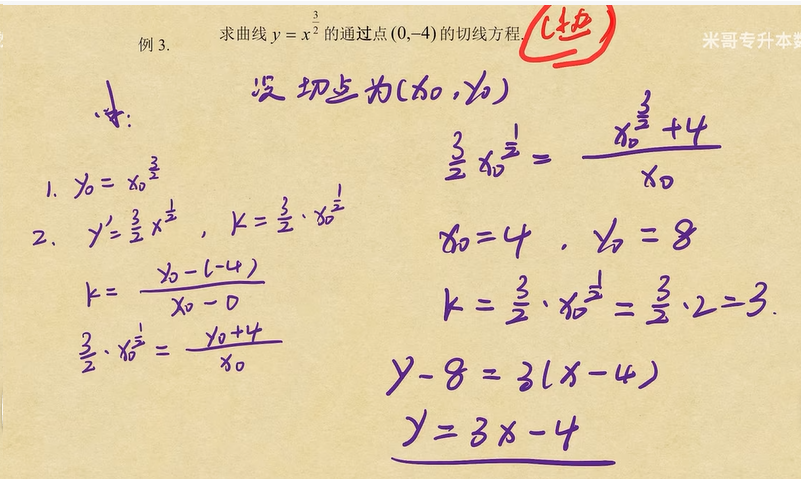 例 3. 求曲线 y = x^{3/2} 的通过点 (0,−4) 的切线方程.
米哥专升本数
设 切点为(x₀, y₀)
1. y₀ = x₀^{3/2}
2. y' = 3/2 x^{1/2} , k = 3/2 · x₀^{1/2}
k = (y₀ − (−4)) / (x₀ − 0)
3/2 · x₀^{1/2} = (y₀ + 4) / x₀
3/2 x₀^{1/2} = (x₀^{3/2} + 4) / x₀
x₀ = 4 . y₀ = 8
k = 3/2 · x₀^{1/2} = 3/2 · 2 = 3.
y − 8 = 3(x − 4)
y = 3x − 4